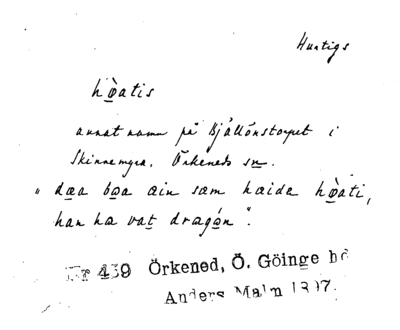 Huntigs
hὼ̠atis
annat namn på Bjällönstorpet i
Skinnemyra. Örkeneds sn.
"dæa bæa ain sæm haida hὼ̠ati,
han ha vat dragón".
Nr 439 Örkened, Ö. Göinge hd
Anders Malm